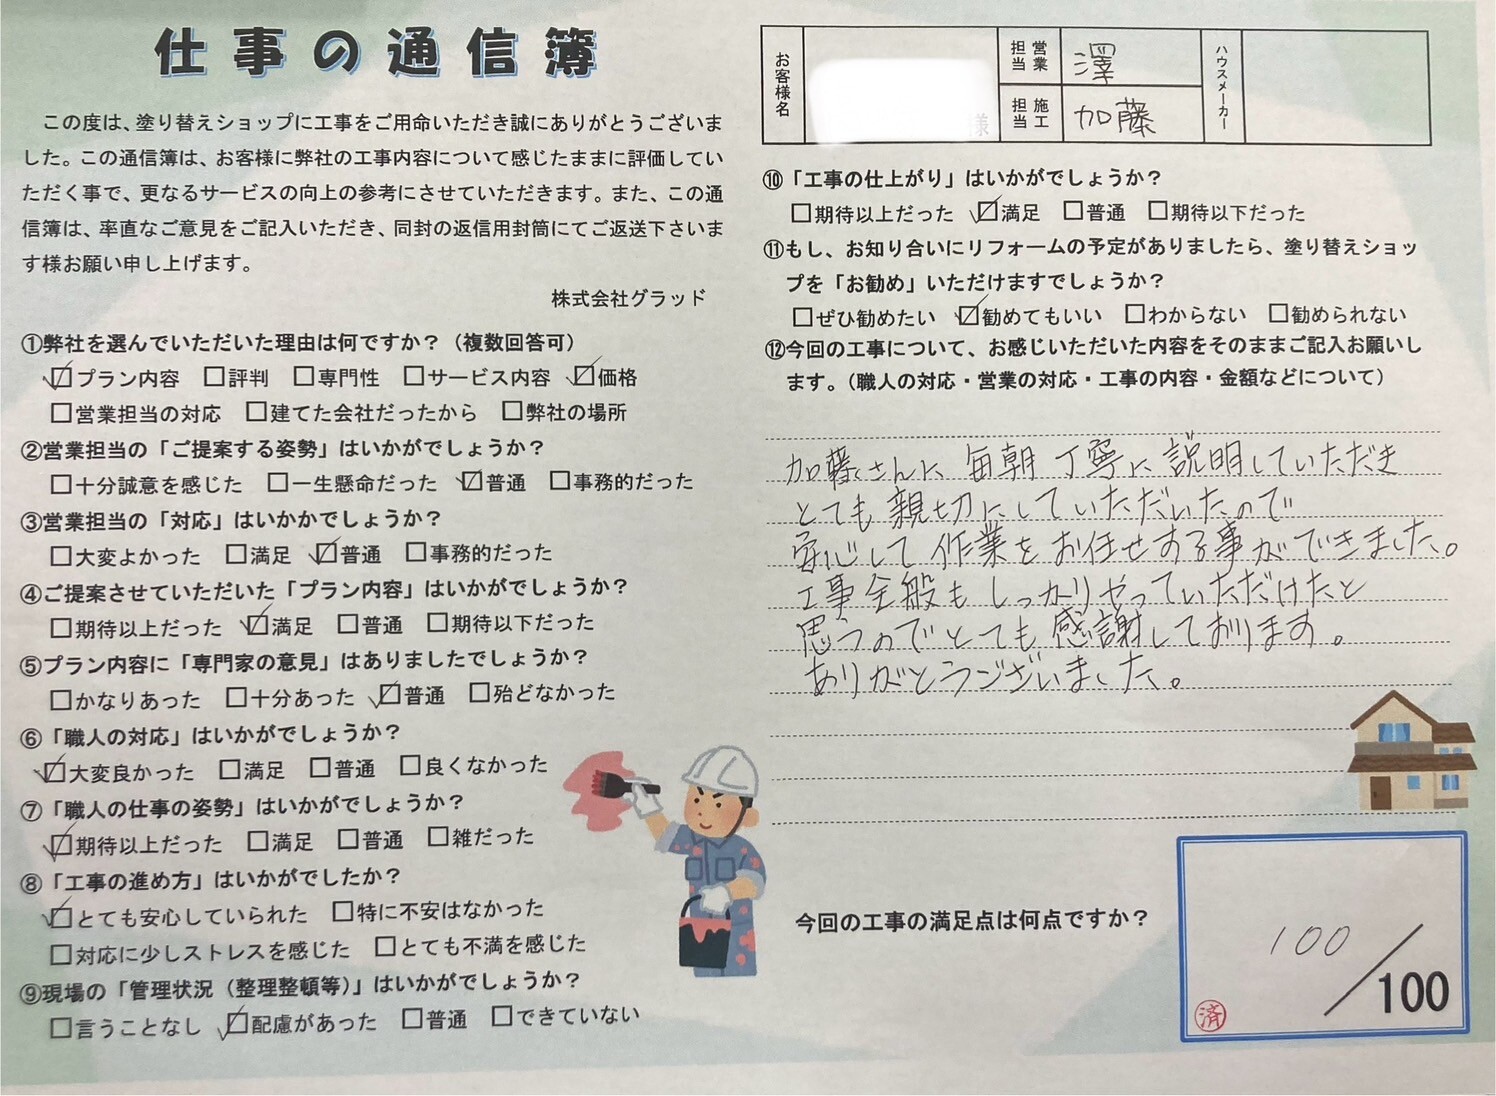 仕事の通信簿
この度は、塗り替えショップに工事をご用命いただき誠にありがとうございま
した。この通信簿は、お客様に弊社の工事内容について感じたままに評価してい
ただく事で、更なるサービスの向上の参考にさせていただきます。また、この通
信簿は、率直なご意見をご記入いただき、同封の返信用封筒にてご返送下さいま
す様お願い申し上げます。
株式会社グラッド
①弊社を選んでいただいた理由は何ですか？（複数回答可）
☑プラン内容 □評判 □専門性 □サービス内容 ☑価格
□営業担当の対応 □建てた会社だったから □弊社の場所
②営業担当の「ご提案する姿勢」はいかがでしょうか？
□十分誠意を感じた □一生懸命だった ☑普通 □事務的だった
③営業担当の「対応」はいかかでしょうか？
□大変よかった □満足 ☑普通 □事務的だった
④ご提案させていただいた「プラン内容」はいかがでしょうか？
□期待以上だった ☑満足 □普通 □期待以下だった
⑤プラン内容に「専門家の意見」はありましたでしょうか？
□かなりあった □十分あった ☑普通 □殆どなかった
⑥「職人の対応」はいかがでしょうか？
☑大変良かった □満足 □普通 □良くなかった
⑦「職人の仕事の姿勢」はいかがでしょうか？
☑期待以上だった □満足 □普通 □雑だった
⑧「工事の進め方」はいかがでしたか？
☑とても安心していられた □特に不安はなかった
□対応に少しストレスを感じた □とても不満を感じた
⑨現場の「管理状況（整理整頓等）」はいかがでしょうか？
□言うことなし ☑配慮があった □普通 □できていない
お客様名 様 営業担当 澤 ハウスメーカー
施工担当 加藤
⑩「工事の仕上がり」はいかがでしょうか？
□期待以上だった ☑満足 □普通 □期待以下だった
⑪もし、お知り合いにリフォームの予定がありましたら、塗り替えショッ
プを「お勧め」いただけますでしょうか？
□ぜひ勧めたい ☑勧めてもいい □わからない □勧められない
⑫今回の工事について、お感じいただいた内容をそのままご記入お願いし
ます。（職人の対応・営業の対応・工事の内容・金額などについて）
加藤さんに 毎朝 丁寧に説明していただき
とても親切にしていただいたので
安心して作業をお任せする事ができました。
工事全般もしっかりやっていただけたと
思うのでとても感謝しております。
ありがとうございました。
今回の工事の満足点は何点ですか？
100／100
済